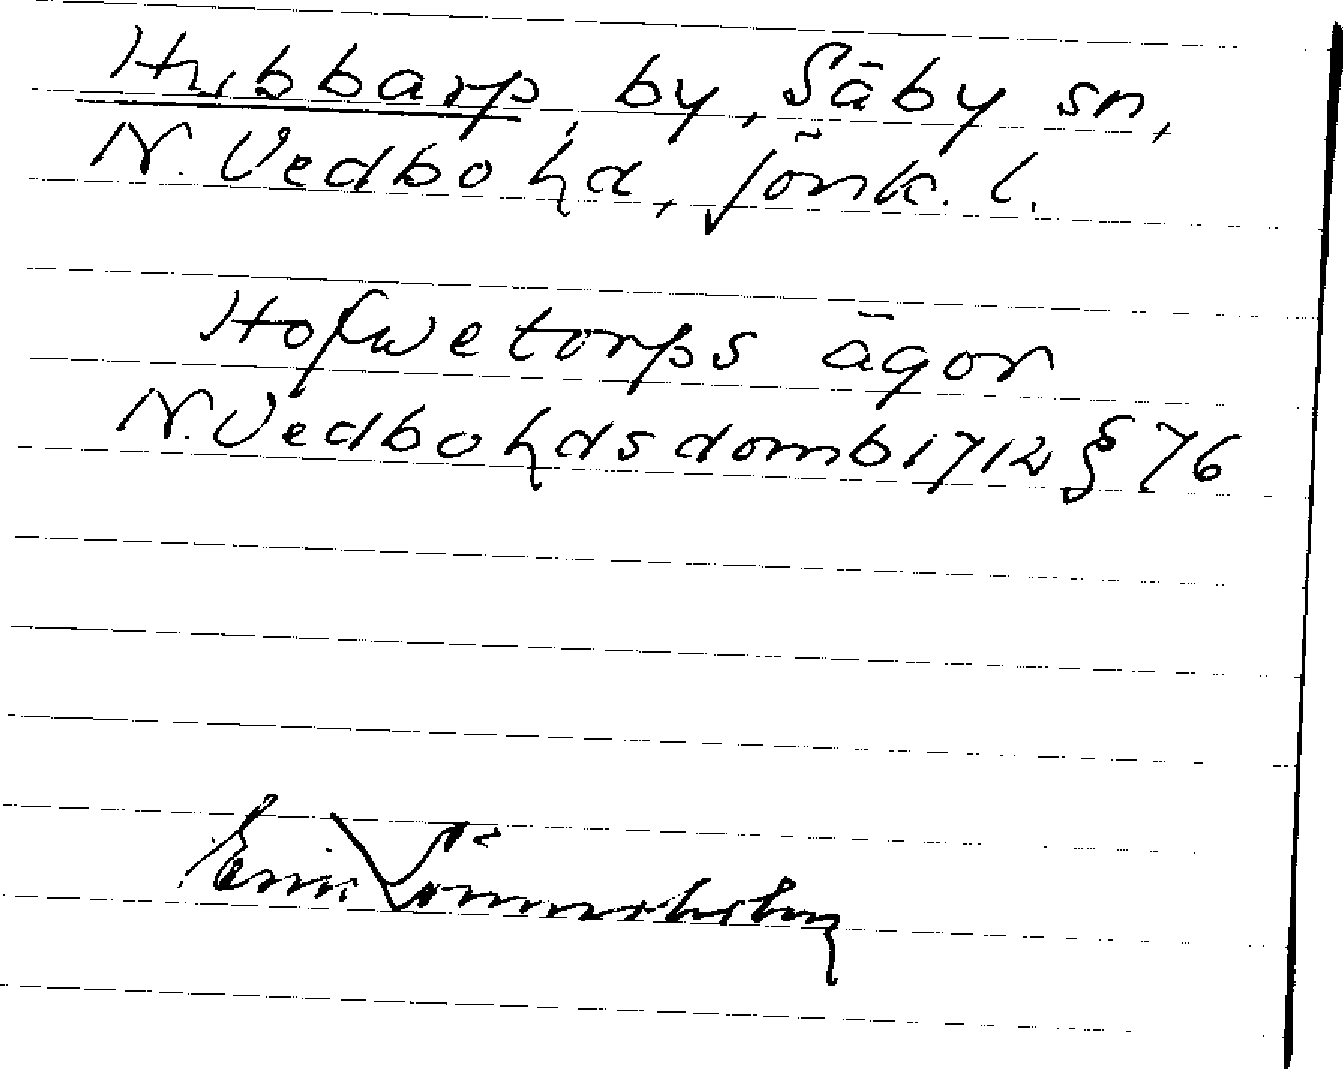 Hubbarp, by, Säby sn,
N. Vedbo hd, Jönk. l.
Hofwetorps ägor
N. Vedbo hds domb 1712 § 76
Erik